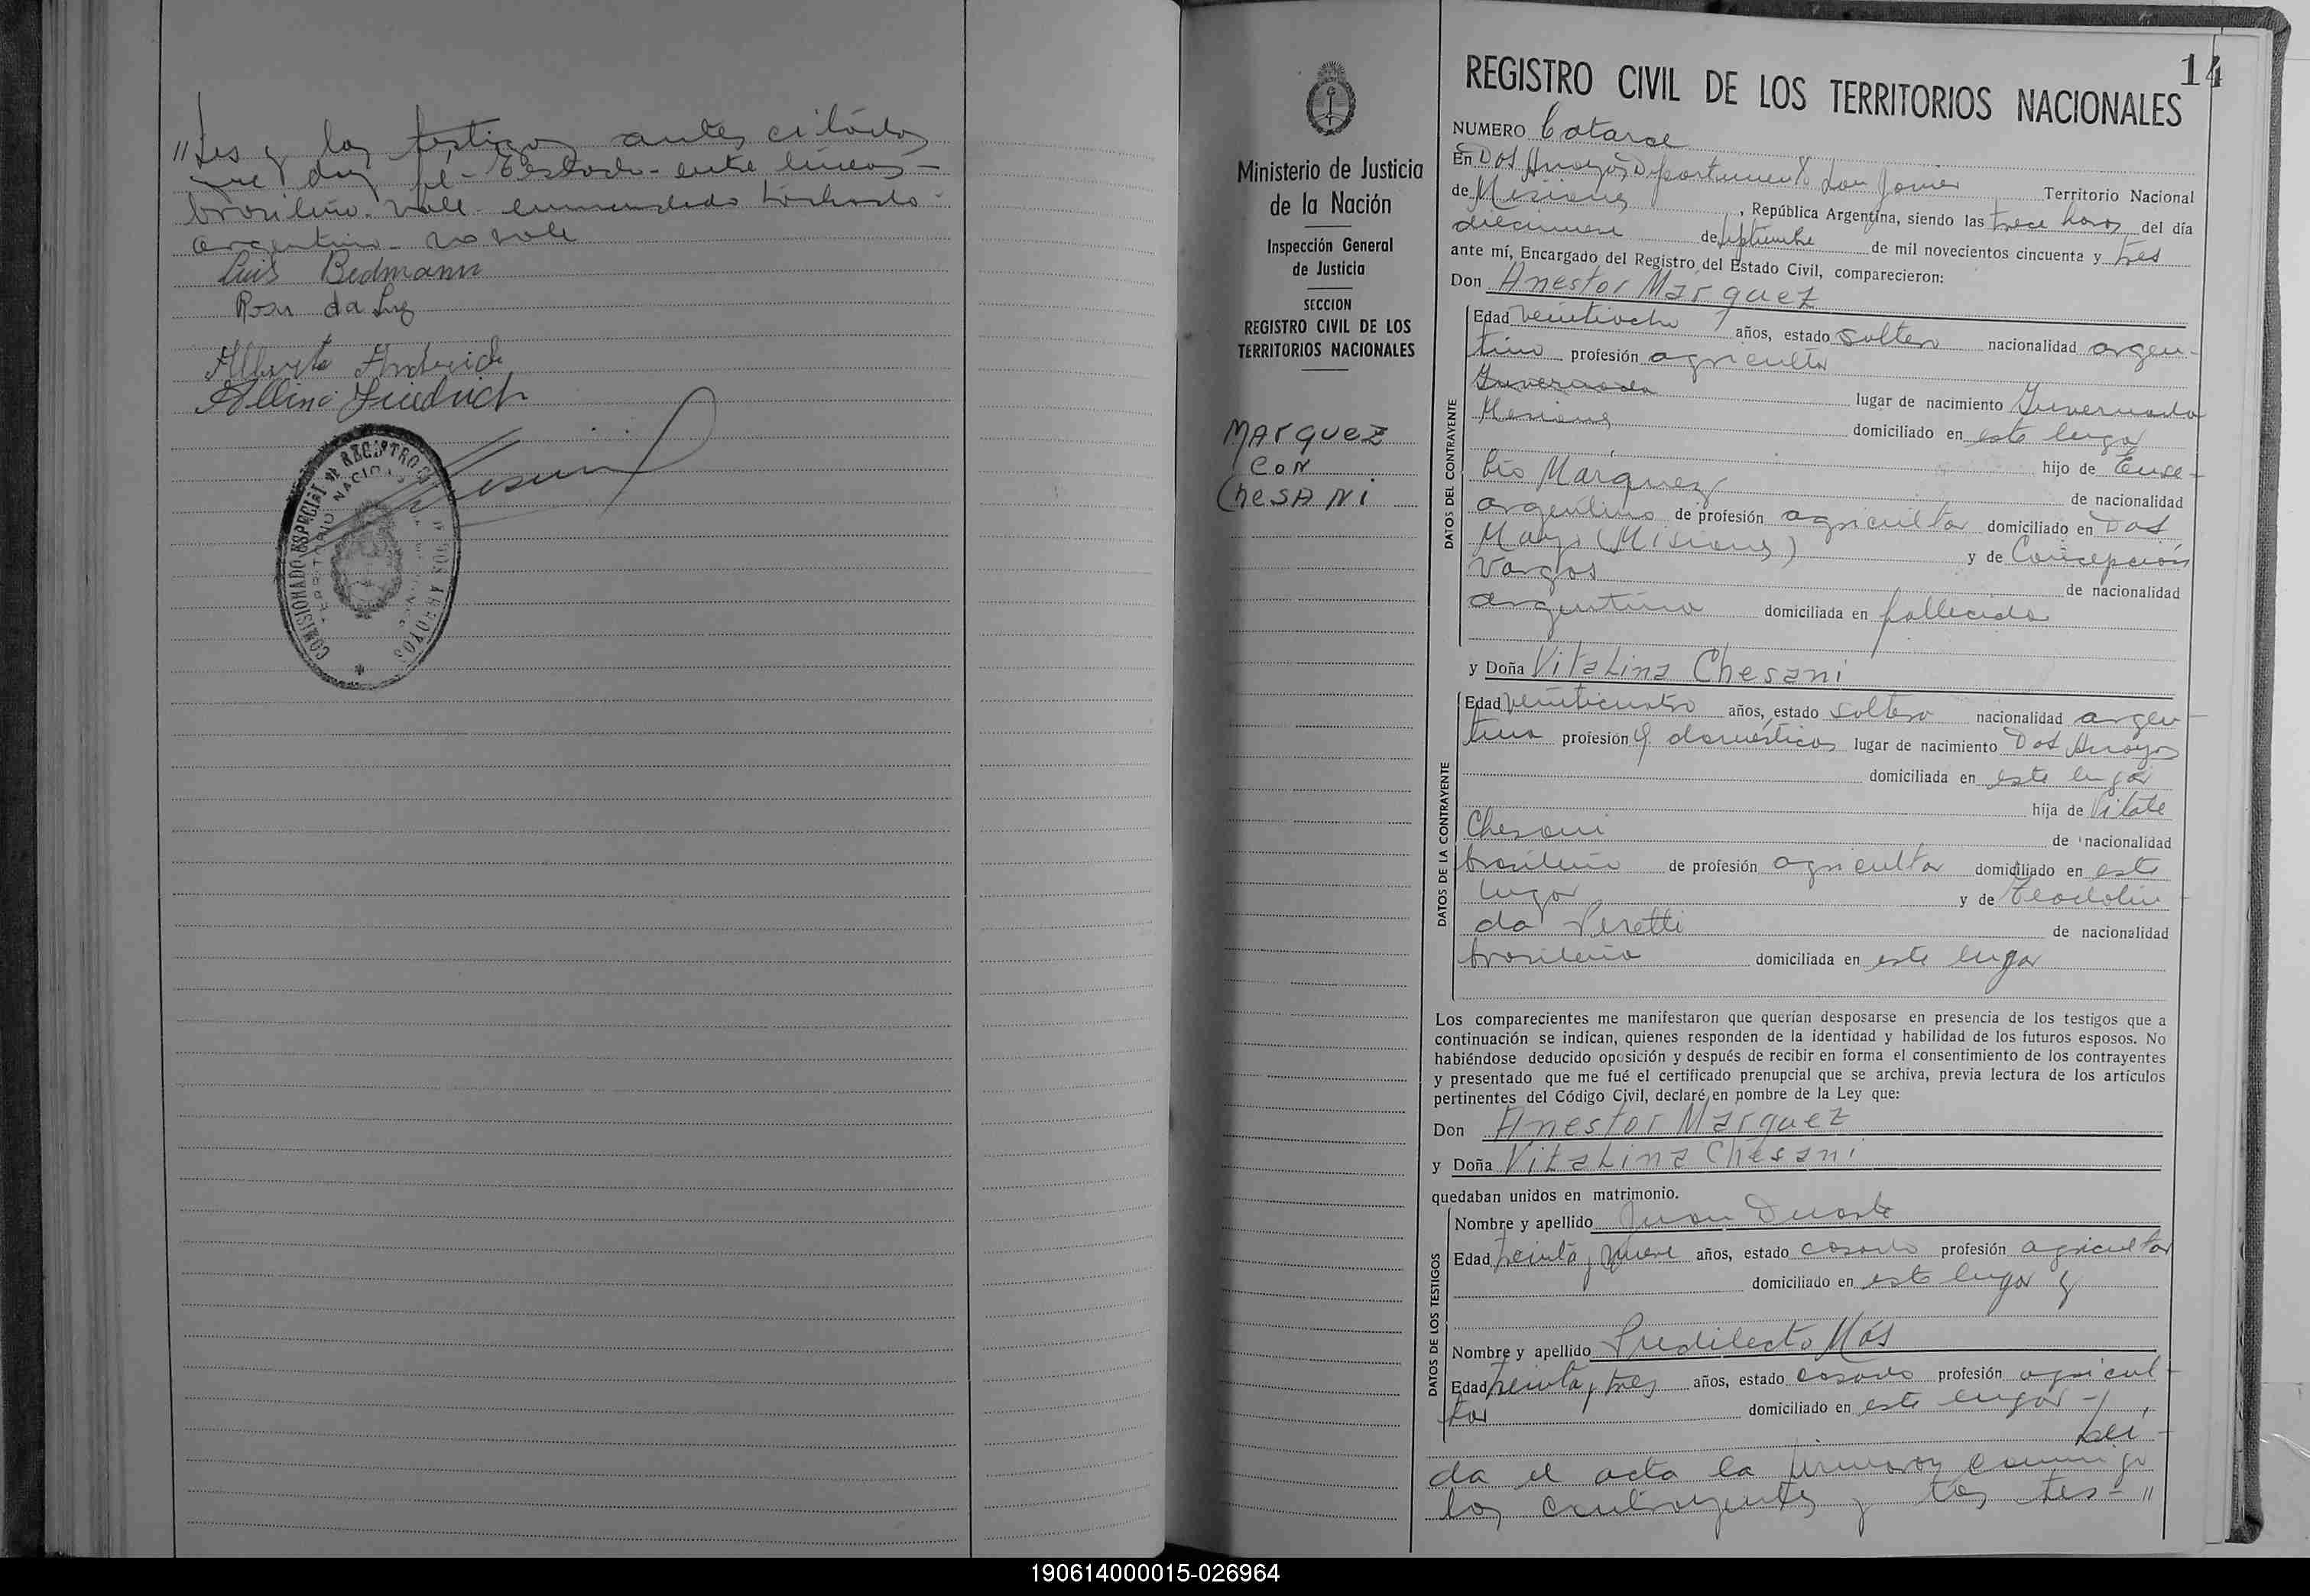 "tes y los testigos antes citados
que doy fé - Testado - entre líneas -
brasileño. vale enmendado tachado:
argentino - no vale
Luis Bedmann
Rosa da Luz
Alberto
Albino Friedrich
COMISIONADO ESPECIAL DE REGISTRO
TERRITORIO NACIONAL
DOS ARROYOS
14
Ministerio de Justicia
de la Nación
Inspección General
de Justicia
SECCION
REGISTRO CIVIL DE LOS
TERRITORIOS NACIONALES
MArquez
CoN
ChesANi
REGISTRO CIVIL DE LOS TERRITORIOS NACIONALES
NUMERO Catorce
En Dos Arroyos Departamento San Javier Territorio Nacional
de Misiones, República Argentina, siendo las trece horas del día
diecinueve de septiembre de mil novecientos cincuenta y tres
ante mí, Encargado del Registro del Estado Civil, comparecieron:
Don Anestor Marquez
DATOS DEL CONTRAYENTE
Edad veintiocho años, estado soltero nacionalidad argen-
tino profesión agricultor
Invernada lugar de nacimiento Invernada
Misiones domiciliado en este lugar
hijo de Euse-
bio Márquez de nacionalidad
argentino de profesión agricultor domiciliado en Dos
(Misiones) y de Concepción
Vargas de nacionalidad
argentina domiciliada en fallecida
y Doña Vitalina Chesani
DATOS DE LA CONTRAYENTE
Edad veinticuatro años, estado soltera nacionalidad argen-
tina profesión q domésticos lugar de nacimiento Dos Arroyos
domiciliada en este lugar
hija de Vitale
Chesani de nacionalidad
brasileño de profesión agricultor domiciliado en este
lugar y de Teodolin
da Peretti de nacionalidad
brasileña domiciliada en este lugar
Los comparecientes me manifestaron que querían desposarse en presencia de los testigos que a
continuación se indican, quienes responden de la identidad y habilidad de los futuros esposos. No
habiéndose deducido oposición y después de recibir en forma el consentimiento de los contrayentes
y presentado que me fué el certificado prenupcial que se archiva, previa lectura de los artículos
pertinentes del Código Civil, declaré en nombre de la Ley que:
Don Anestor Marquez
y Doña Vitalina Chesani
quedaban unidos en matrimonio.
DATOS DE LOS TESTIGOS
Nombre y apellido Juan Duarte
Edad treinta y nueve años, estado casado profesión agricultor
domiciliado en este lugar y
Nombre y apellido Predilecto Más
Edad treinta y tres años, estado casado profesión agricul-
tor domiciliado en este lugar -
Leí-
da el acta la firmaron conmigo
los contrayentes y los tes-"
190614000015-026964